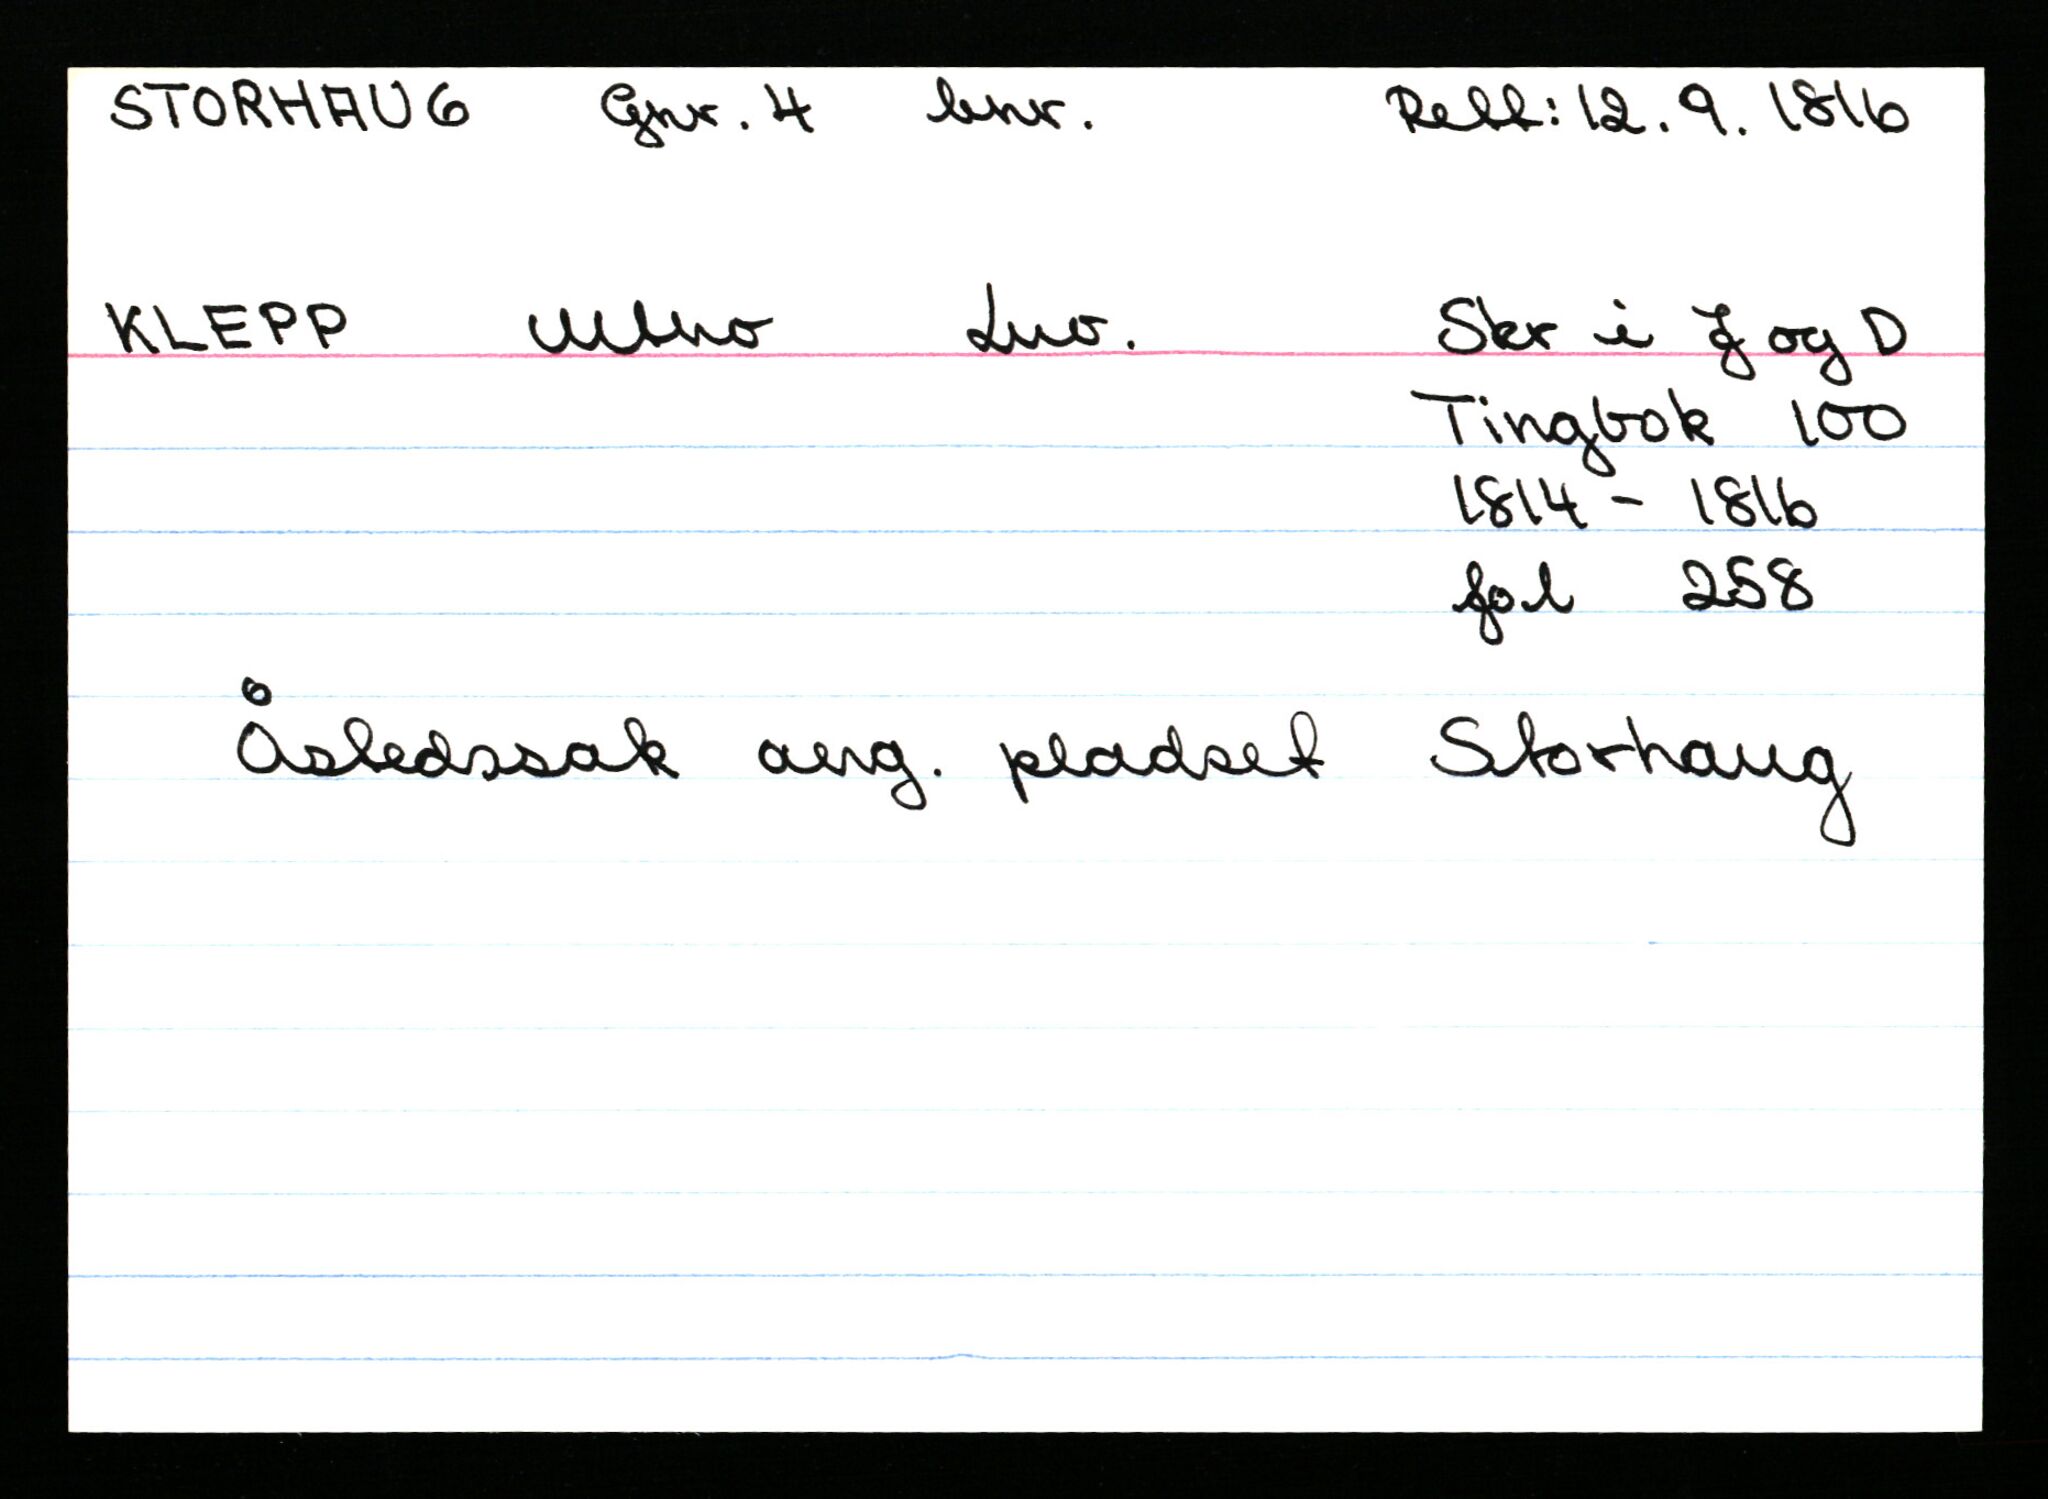 STORHAUG Gnr. 4 bnr. Rett: 12. 9. 1816
KLEPP Mtno Lno. Skr i J og D
Tingbok 100
1814 - 1816
fol 258
Åstedssak ang. pladset Storhaug